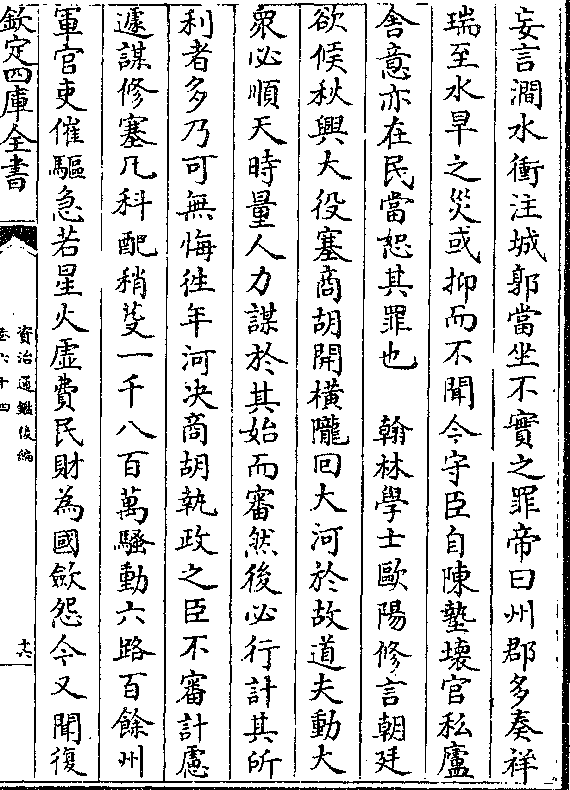 妄言澗水衝注城郭當坐不實之罪帝曰州郡多奏祥
瑞至水旱之災或抑而不聞今守臣自陳墊壊官私廬
舎意亦在民當恕其罪也　翰林學士歐陽修言朝廷
欲候秋興大役塞商胡開橫隴回大河於故道夫動大
衆必順天時量人力謀於其始而審然後必行計其所
利者多乃可無悔徃年河決商胡執政之臣不審計慮
遽謀修塞凡科配稍芟一千八百萬騷動六路百餘州
軍官吏催驅急若星火虛費民財為國歛怨今又聞復
欽定四庫全書
資治通鑑後編
卷六十四
十六